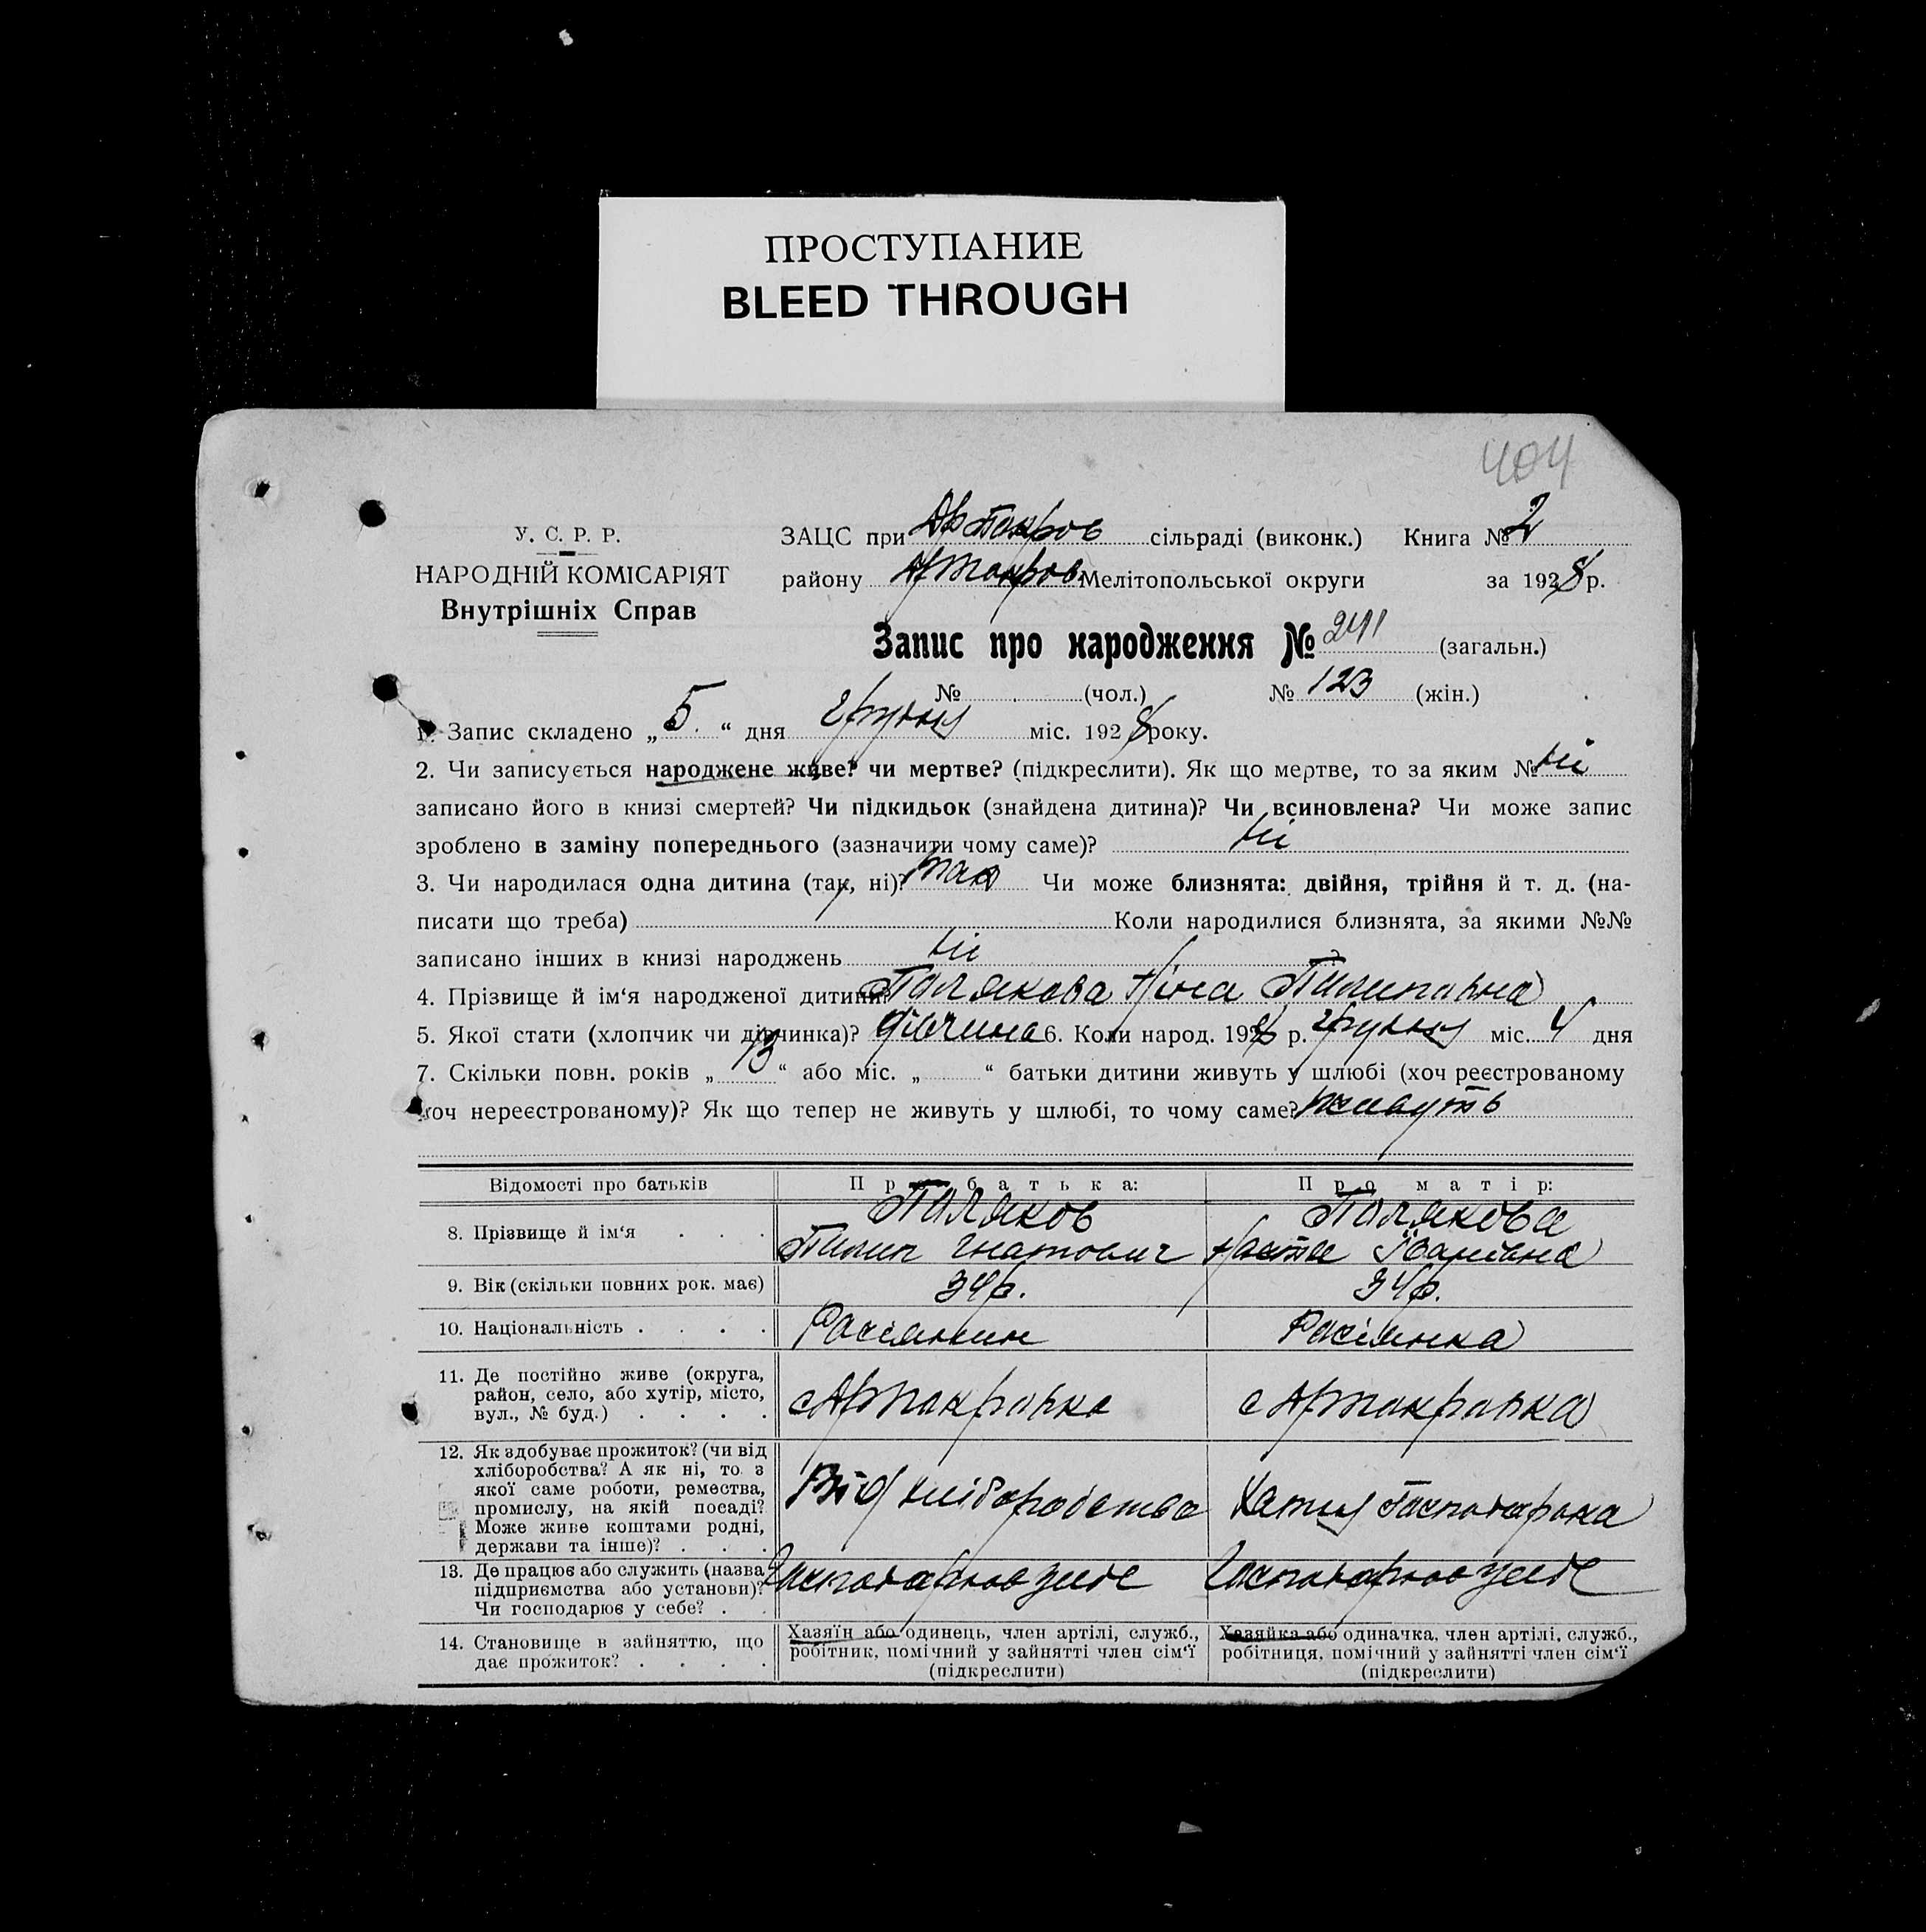 ПРОСТУПАНИЕ
BLEED THROUGH
404
У. С. Р. Р.
НАРОДНІЙ КОМІСАРІЯТ
Внутрішніх Справ
ЗАЦС при Арпокров сільраді (виконк.) Книга № 2
району Мелітопольської округи за 1928 р.
Запис про народження № 241 (загальн.)
№ (чол.) № 123 (жін.)
1. Запис складено „5.“ дня грудня міс. 1928 року.
2. Чи записується народжене живе? чи мертве? (підкреслити). Як що мертве, то за яким № ні
записано його в книзі смертей? Чи підкидьок (знайдена дитина)? Чи всиновлена? Чи може запис
зроблено в заміну попереднього (зазначити чому саме)? ні
3. Чи народилася одна дитина (так, ні)? так Чи може близнята: двійня, трійня й т. д. (на-
писати що треба) Коли народилися близнята, за якими №№
записано інших в книзі народжень ні
4. Прізвище й ім‘я народженої дитини Полякова Ніна Пилиповна
5. Якої стати (хлопчик чи дівчинка)? дівчина 6. Коли народ. 1928 р. грудня міс. 4 дня
7. Скільки повн. років „13“ або міс. „ “ батьки дитини живуть у шлюбі (хоч реєстрованому
хоч нереєстрованому)? Як що тепер не живуть у шлюбі, то чому саме? живуть
Відомості про батьків Про батька: Про матір:
8. Прізвище й ім‘я Поляков Полякова
Пилип Гнатович Настя Іванівна
9. Вік (скільки повних рок. має) 34р. 34р.
10. Національність Росіянин Росіянка
11. Де постійно живе (округа,
район, село, або хутір, місто,
вул., № буд.)
12. Як здобуває прожиток? (чи від
хліборобства? А як ні, то з
якої саме роботи, ремества,
промислу, на якій посаді?
Може живе коштами родні,
держави та інше)?
Від хліборобства Хатня господарка
13. Де працює або служить (назва
підприємства або установи)?
Чи господарює у себе?
Господарює у себе Господарює у себе
14. Становище в зайняттю, що
дає прожиток?
Хазяїн або одинець, член артілі, служб.,
робітник, помічний у зайнятті член сім‘ї
(підкреслити)
Хазяйка або одиначка, член артілі, служб.,
робітниця, помічний у зайнятті член сім‘ї
(підкреслити)